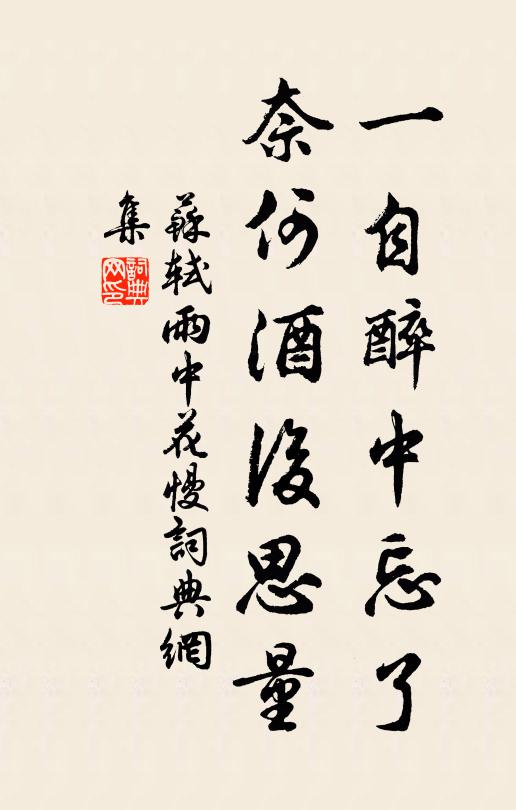 一自醉中忘了
奈何酒後思量
蘇軾雨中花慢詞典網
集
詞典網印